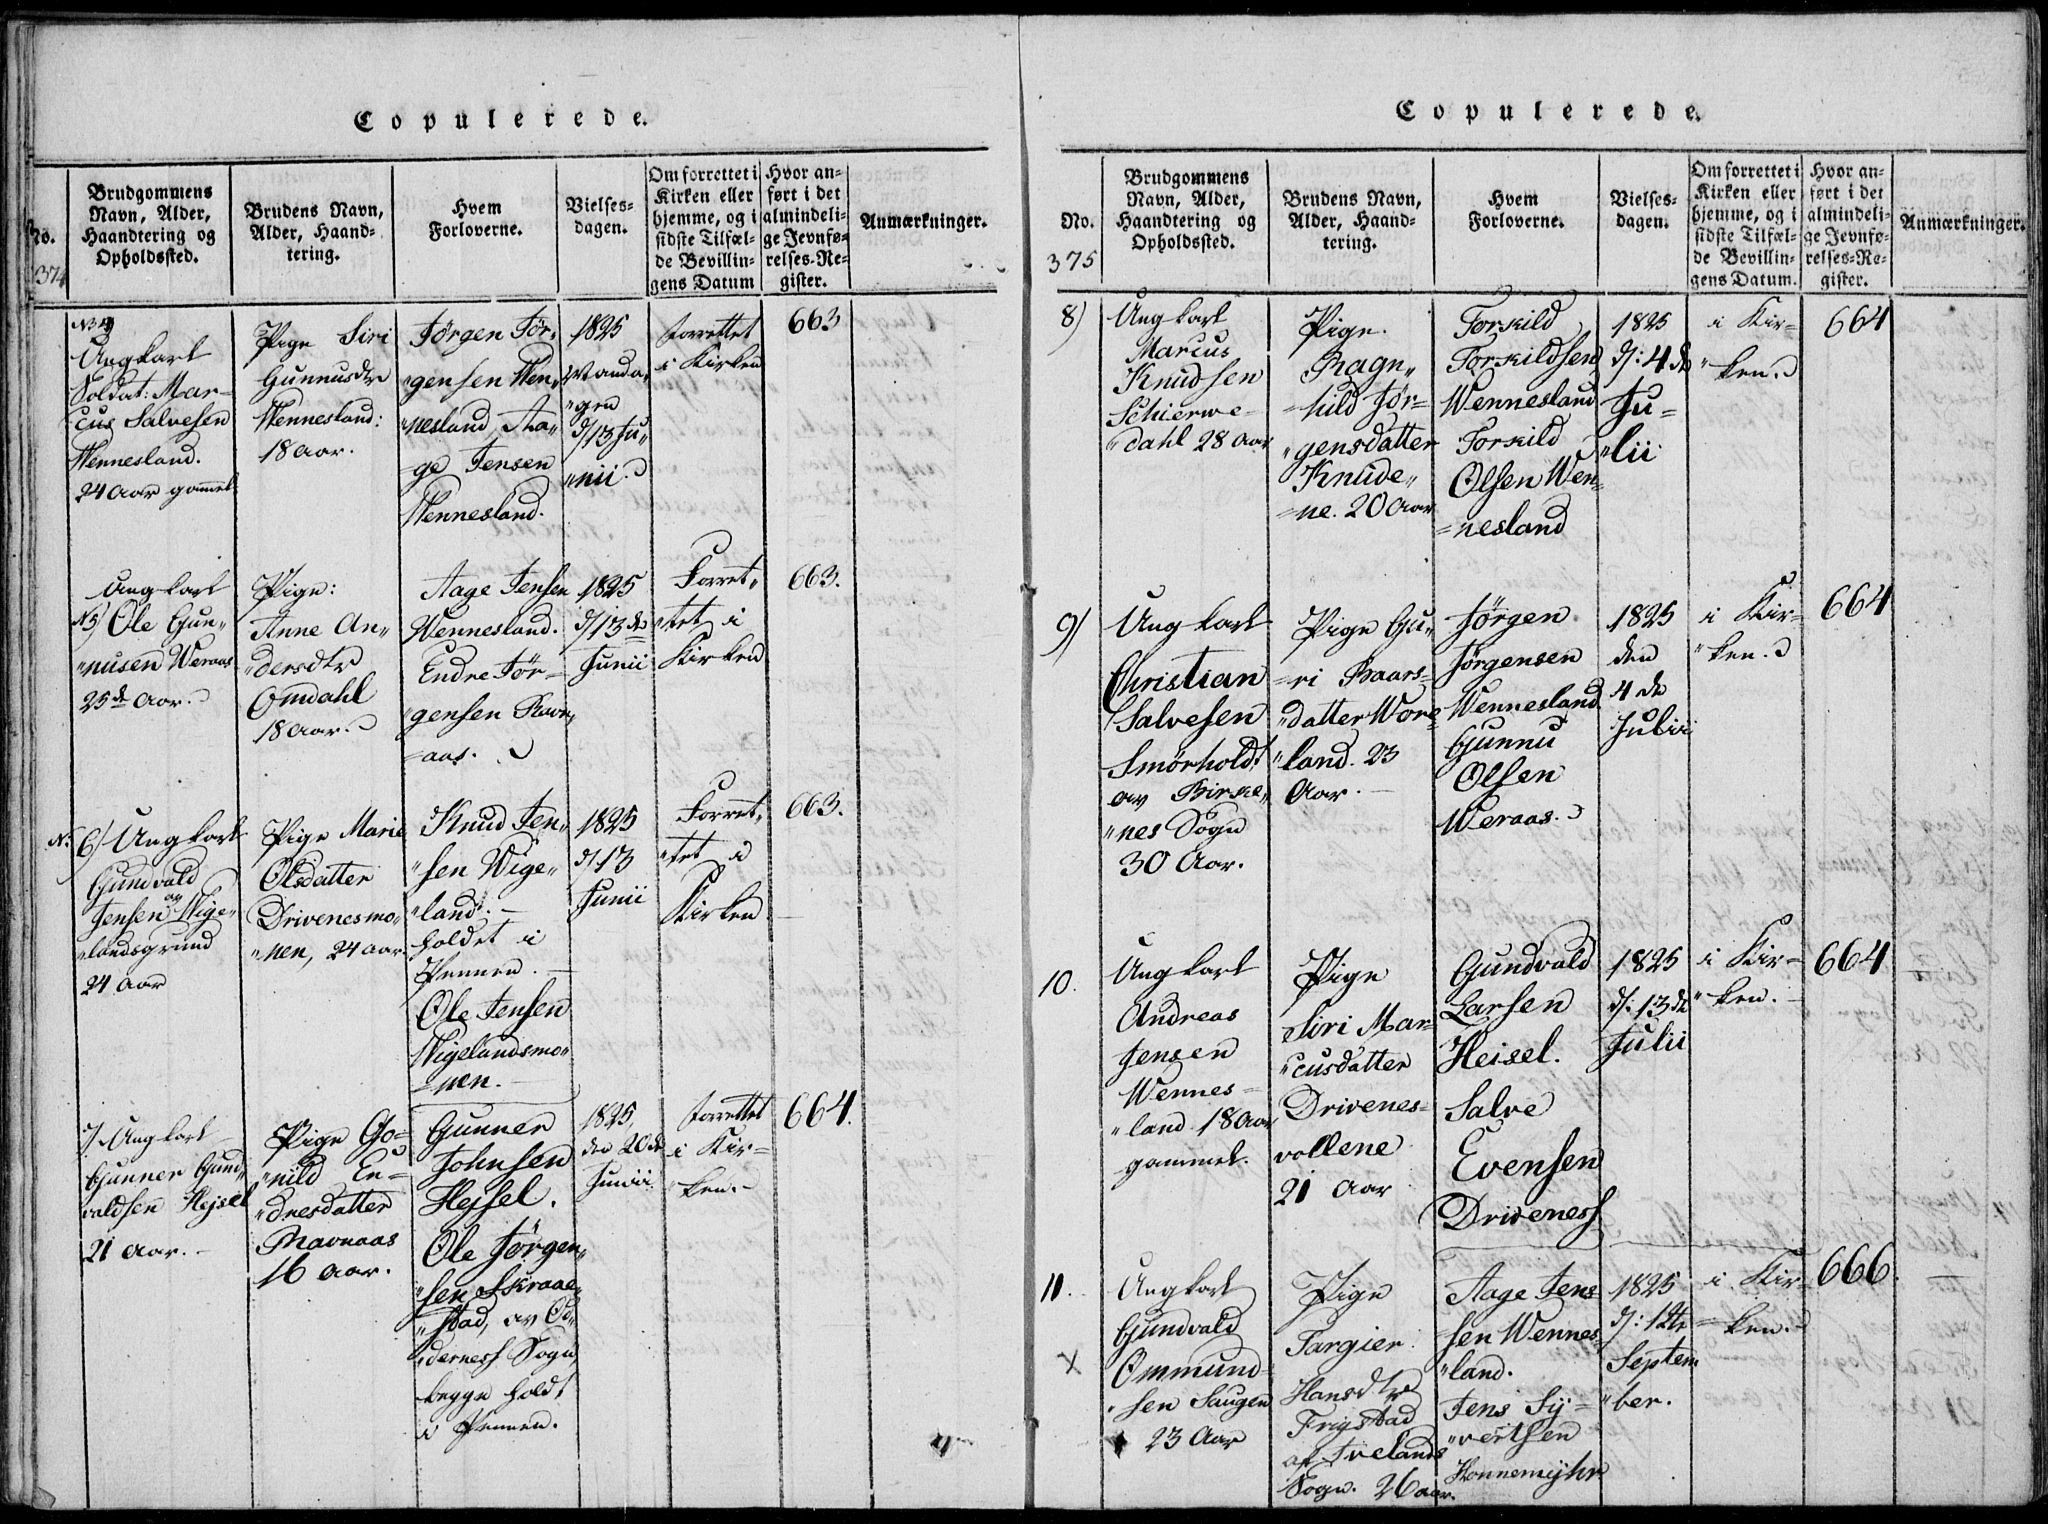 Copulerede.
No.
374
Brudgommens
Navn, Alder,
Haandtering og
Opholdssted.
Brudens Navn,
Alder, Haand-
tering.
Hvem
Forloverne.
Vielses-
dagen.
Om forrettet i
Kirken eller
hjemme, og i
sidste Tilfæl-
de Bevillin-
gens Datum
Hvor an-
ført i det
almindeli-
ge Jevnfø-
relses-Re-
gister.
Anmærkninger.
Ungkarl
Soldat: Mar-
cus Salvesen
Wennesland.
24 Aar gammel
Pige Siri
Gunnusdtr
Wennesland:
18 Aar.
Jørgen Jør-
"gensen Wen"
"nesland Aa"
"ge Jensen
Wennesland.
1825
Manda"
"gen
d/13 Ju"
"nii.
forrettet
i Kirken
663
N 5)
Ungkarl
Ole Gun"
"nusen Weraas
25de Aar.
Pige:
Anne An"
"dersdtr
Omdahl
18 Aar.
Aage Jensen
Wennesland.
Endre Jør-
"gensen Ravn"
=aas.
1825
d/13de
Junii
Forret"
"tet i
Kirken
663.
N. 6) Ungkarl
Gundvald
Jensen av Wige"
"landsgrund
24 Aar
Pige Marie
Olsdatter
Drivenesmo"
"nen, 24 aar.
Knud Jen"
"sen Wige"
"land. -
holdet i
Pennen. -
Ole Jensen
Wigelandsmo"
=nen. -
1825
d/13
Junii
Forret"
"tet i
Kirken
663.
7/ Ungkarl
Gunner Gund"
valdsen Hejsel
21 Aar. -
Pige Go=
"nild En-
"dresdatter
Ravnaas
16 Aar.
Gunner
Johnsen
Hejsel.
Ole Jørgen"
"sen Skraae"
"stad, av Od"
"derness Sogn,
begge holdt
i Pennen.
1825,
den 20de
Junii
forrettet
i Kir=
"ken. -
664.
Copulerede.
No.
375
Brudgommens
Navn, Alder,
Haandtering og
Opholdssted.
Brudens Navn,
Alder, Haand-
tering.
Hvem
Forloverne.
Vielses-
dagen.
Om forrettet i
Kirken eller
hjemme, og i
sidste Tilfæl-
de Bevillin-
gens Datum.
Hvor an-
ført i det
almindeli-
ge Jevnfø-
relses-Re-
gister.
Anmærkninger.
8)
Ungkarl
Marcus
Knudsen
Schierwe-
"dahl 28 Aar
Pige.
Ragn"
=hild Jør-
"gensdatter
Knude"
=ne. 20 Aar
Torkild
Torkildsen
Wennesland
Torkild
Olsen Wen"
=nesland
1825
d/: 4de
Ju-
"lii
i Kir-
"ken.
664
9)
Ungkarl
Christian
Salvesen
Smørholdt
av Birke"
"nes Sogn
30 Aar.
Pige Gu"
=ri Baars-
"datter Wore"
"land. 23
Aar. -
Jørgen
Jørgensen
Wennesland
Gunnu
Olsen
Weraas.
1825
den
4de
Julii
i Kir-
"ken.
664
10.
Ungkarl
Andreas
Jensen
Wennes=
"land 18 Aar
gammel.
Pige
Siri Mar-
"cusdatter
Drivenes=
vollene
21 Aar
Gundvald
Larsen
Heisel.
Salve
Evensen
Driveness
1825
d/: 13de
Julii
i Kir-
"ken. -
664
11.
Ungkarl
Gundvald
Ommund=
"sen Saugen
23 Aar
Pige
Targier
Hansdtr
Frigstad
af Ivelands
Sogn. 26 aar.
Aage Jens
"sen Wennes-
"land.
Jens Sy=
"vertsen
Honnemyhr
1825
d/: 12te
Septem
"ber.
i Kir-
=ken. -
666.
X